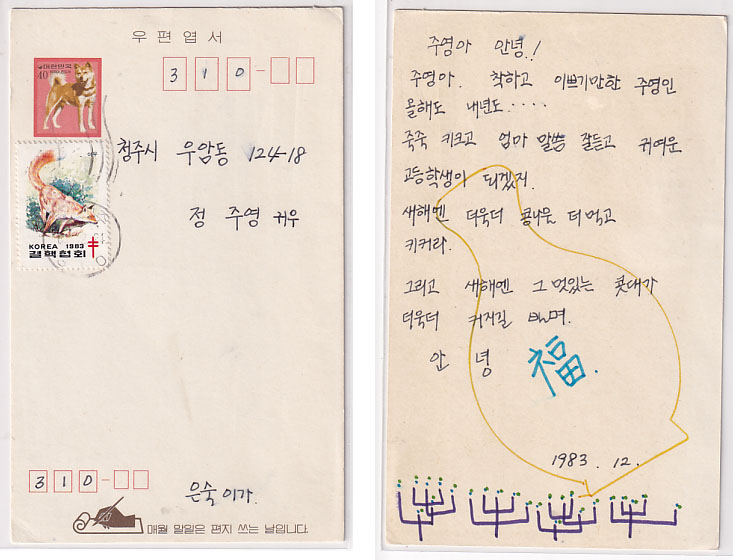 우편엽서
대한민국
40
310-
청주시 우암동 124-18
정 주영 귀우
KOREA 1983
결핵협회
310-
은숙이가.
매월 말일은 편지 쓰는 날입니다.
주영아 안녕.!
주영아. 착하고 이쁘기만한 주영인
올해도 내년도....
죽죽 키크고 엄마 말씀 잘듣고 귀여운
고등학생이 되겠지.
새해엔 더욱더 콩나물 더 먹고
키커라.
그리고 새해엔 그 멋있는 콧대가
더욱더 커지길 빌며.
안 녕 福.
1983. 12.